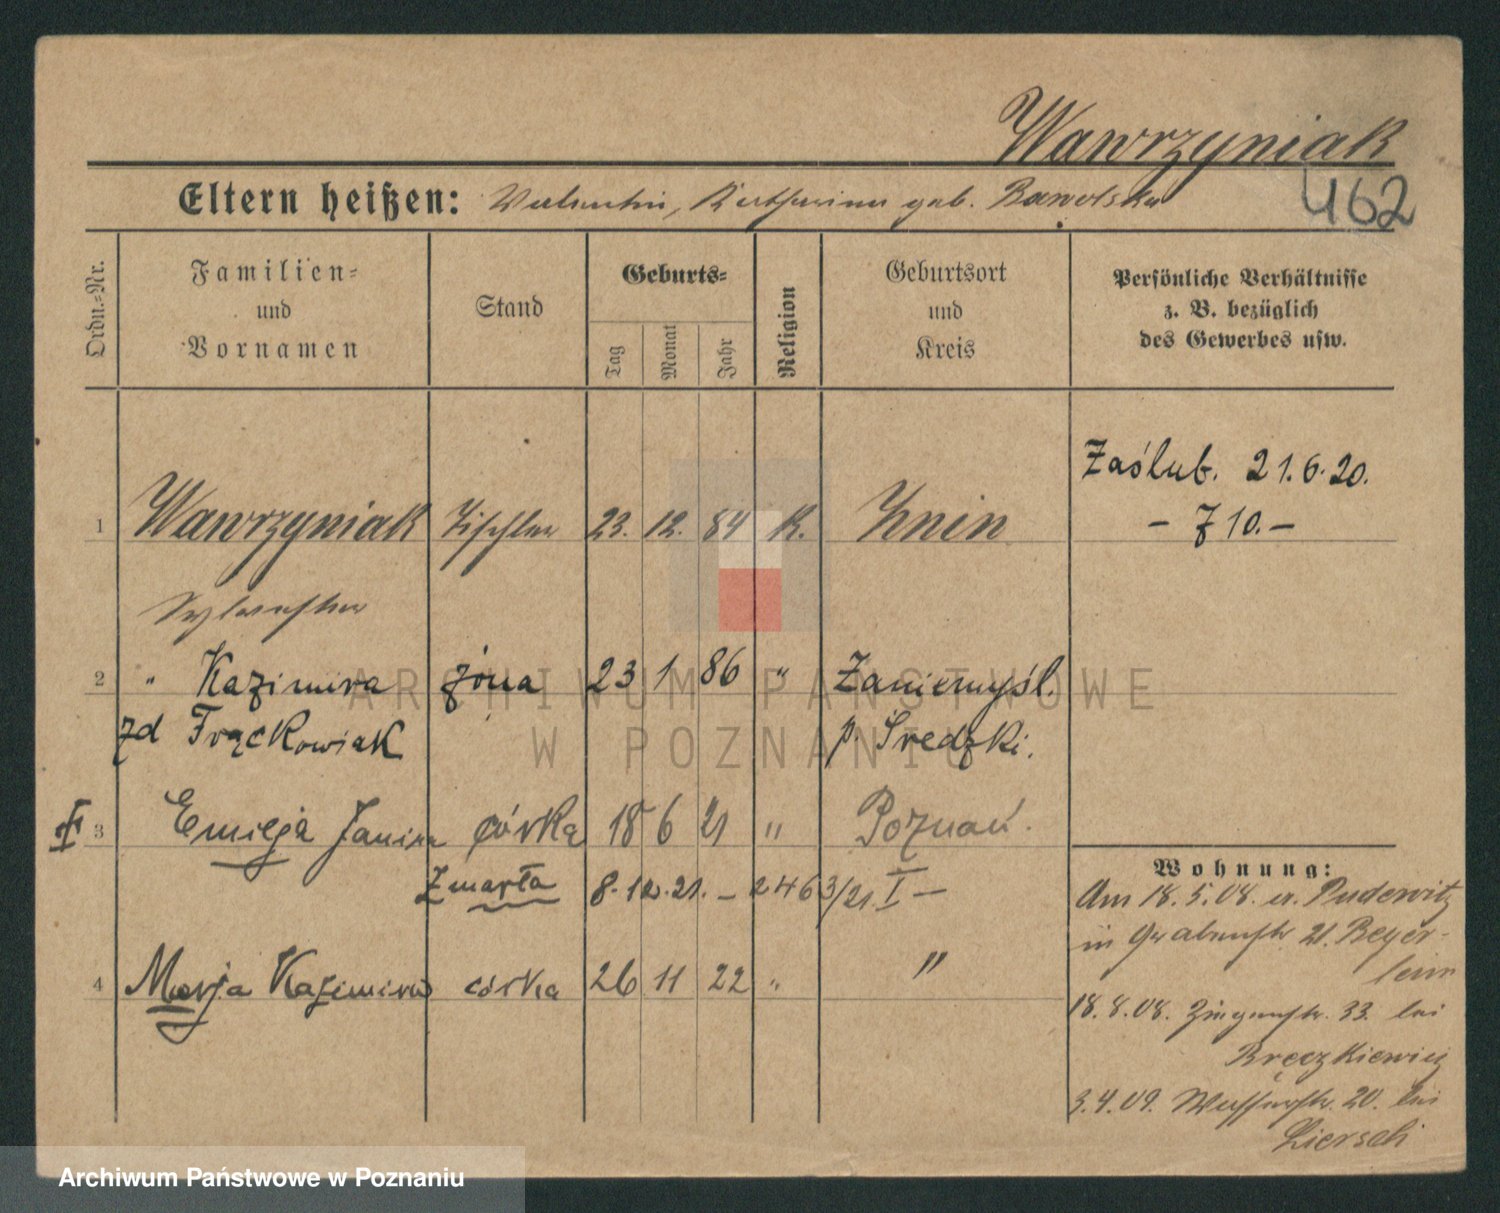 Wawrzyniak
462
Eltern heißen: Valentin, Katharina geb.
Ordn.=Nr.
Familien=
und
Vornamen
Stand
Geburts=
Tag
Monat
Jahr
Religion
Geburtsort
und
Kreis
Persönliche Verhältnisse
z. B. bezüglich
des Gewerbes usw.
Zaślub. 21.6.20.
– Z 10. –
1 Wawrzyniak Tischler 23. 12. 84 K. Znin
Sylvester
2 " Kazimira żona 23 1 86 " Zaniemyśl.
zd Frąckowiak p. Średzki.
3 Emilja Janina córka 18 6 21 " Poznań.
Zmarła 8.12.21. – 2463/21 I –
Wohnung:
Am 18. 5. 08. a. Pudewitz
in Grabenstr. 21. Beyer-
lein
4 Marja Kazimira córka 26 11 22 " "
18. 8. 08. 33. bei
Bręczkiewicz
3. 4. 09. 20. bei
Liersch
ARCHIWUM PAŃSTWOWE
W POZNANIU
Archiwum Państwowe w Poznaniu